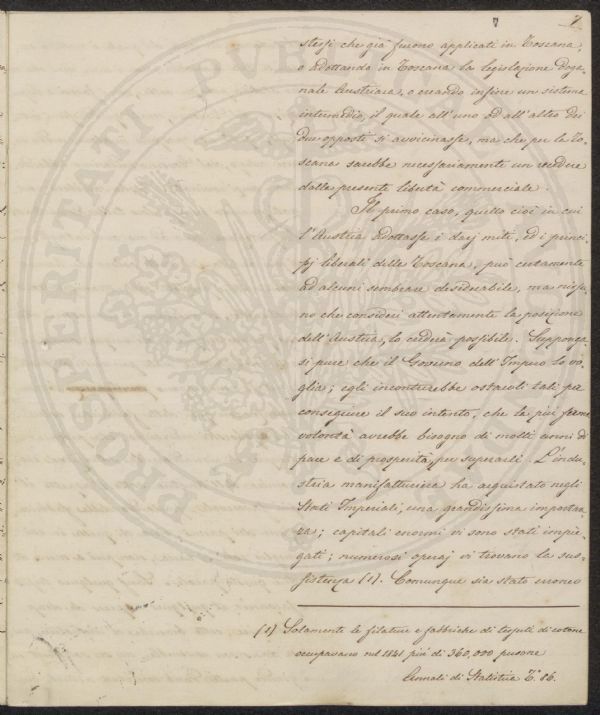 7
7
stessi che già furono applicati in Toscana,
o adottando in Toscana la legislazione Doga-
nale Austriaca, o creando infine un sistema
intermedio, il quale all'uno ed all'altro dei
due opposti si avvicinasse, ma che per la To-
scana sarebbe necessariamente un recedere
dalla presente libertà commerciale.
Il primo caso, quello cioè in cui
l'Austria adottasse i dazj miti, ed i princi-
pj liberali della Toscana, può certamente
ad alcuni sembrare desiderabile, ma nessu-
no che consideri attentamente la posizione
dell'Austria, lo crederà possibile. Suppongа-
si pure che il Governo dell'Impero lo vo-
glia; egli incontrerebbe ostacoli tali per
conseguire il suo intento, che la più ferma
volontà avrebbe bisogno di molti anni di
pace e di prosperità, per superarli. L'indu-
stria manifatturiera ha acquistato negli
Stati Imperiali, una grandissima importan-
za; capitali enormi vi sono stati impie-
gati; numerosi operaj vi trovano la sus-
sistenza (1). Comunque sia stato erroneo
(1) Solamente le filature e fabbriche di tessuti di cotone
occupavano nel 1841 più di 360,000 persone
Annali di Statistica T.º 86.
PROSPERITATI PVBLICAE